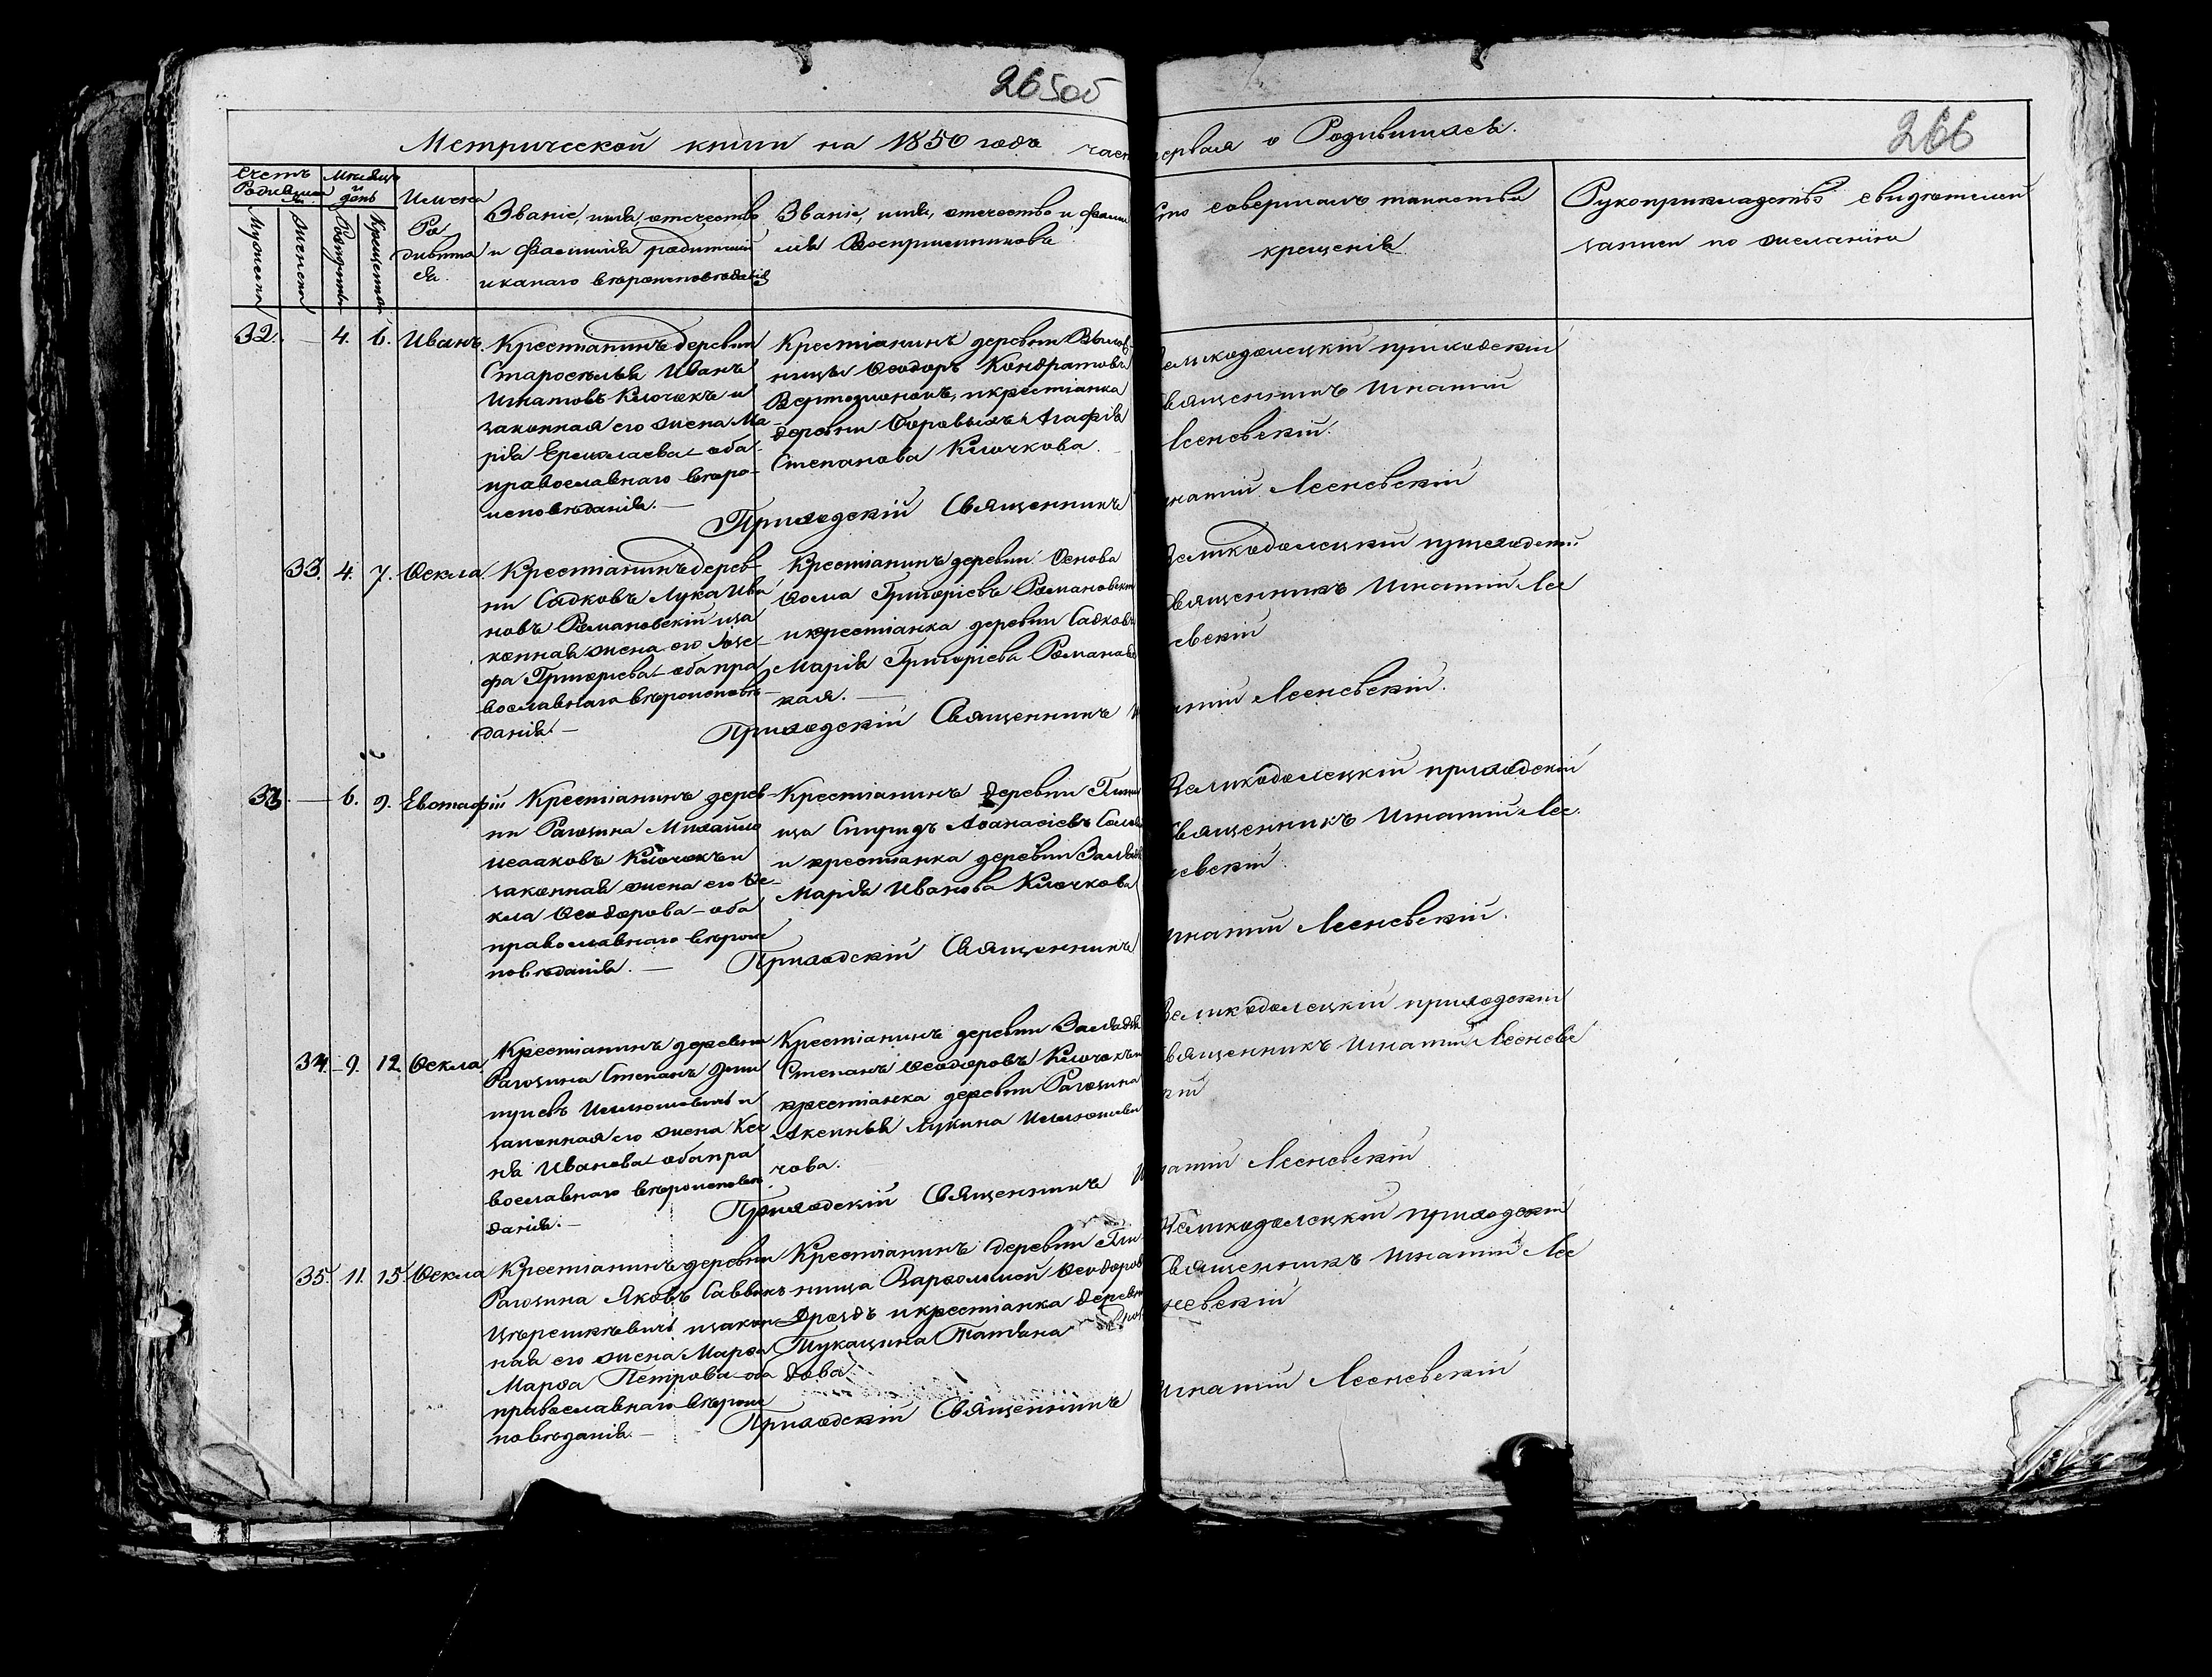 265об
266
Метрической книги на 1850 годъ часть первая о Родившихся.
Счетъ Родившихся
Мужеска
Женска
Мѣсяцъ и день
Рожденія
Крещенія
Имена Родившихся
Званіе, имя, отчество
и фамилія родителей
и какаго вѣроисповѣданія
Званіе, имя, отчество и фами
лія Воспріемниковъ
Кто совершалъ таинство
крещенія
Рукоприкладство свидѣтелей
записи по желанію
32. — 4. 6. Иванъ.
Крестьянинъ деревни
Староселья Иванъ
Игнатовъ Клочокъ и
законная его жена Ма-
рія Ермолаева – оба
православнаго вѣро-
исповѣданія. —
Крестьянинъ деревни
ницы Ѳеодоръ Кондратовъ
и крестьянка
деревни Боровыхъ Агафія
Степанова Клочкова.
Великодолецкій приходскій
Священникъ Игнатій
Лесневскій.
Приходскій Священникъ Игнатій Лесневскій
33. 4. 7. Ѳекла.
Крестьянинъ дерев-
ни Садковъ Лука Ива
новъ Романовскій и за
конная жена его Іозе-
фа Григорьева – оба пра
вославнаго вѣроисповѣ-
данія. —
Крестьянинъ деревни Основа
Ѳома Григорьевъ Романовскій
и крестьянка деревни Садковъ
Марія Григорьева Романовс
кая. —
Великодолецкій приходскій
Священникъ Игнатій Лес
невскій
Приходскій Священникъ Игнатій Лесневскій.
33. — 6. 9. Евстафій
Крестьянинъ дерев-
ни Рагозина Михайло
Исааковъ Клочокъ и
законная жена его Ѳе-
кла Ѳеодорова – оба
православнаго вѣроис
повѣданія. —
Крестьянинъ деревни Глини
ца Спиридъ Аѳанасіевъ
и крестьянка деревни
Марія Иванова Клочкова
Великодолецкій приходскій
Священникъ Игнатій Лес.
невскій.
Приходскій Священникъ Игнатій Лесневскій.
34. 9. 12. Ѳекла
Крестьянинъ деревни
Рагозина Степанъ
и
законная его жена Ксе
нія Иванова – оба пра
вославнаго вѣроисповѣ
данія. —
Крестьянинъ деревни
Степанъ Ѳеодоровъ Клочокъ и
крестьянка деревни Рагозина
Аксинья Лукина
чова.
Великодолецкій приходскій
Священникъ Игнатій Лесневс
кій
Приходскій Священникъ Игнатій Лесневскій
35. 11. 15. Ѳекла
Крестьянинъ деревни
Рагозина Яковъ Саввинъ
и закон
ная его жена Марѳа
Марѳа Петрова – оба
православнаго вѣроис
повѣданія. —
Крестьянинъ деревни Гли-
ница Варѳоломей Ѳеодоров
Дроздъ и крестьянка деревни
Тукацина Татьяна Дроз
дова
Великодолецкій приходскій
Священникъ Игнатій Лес
невскій
Приходскій Священникъ Игнатій Лесневскій